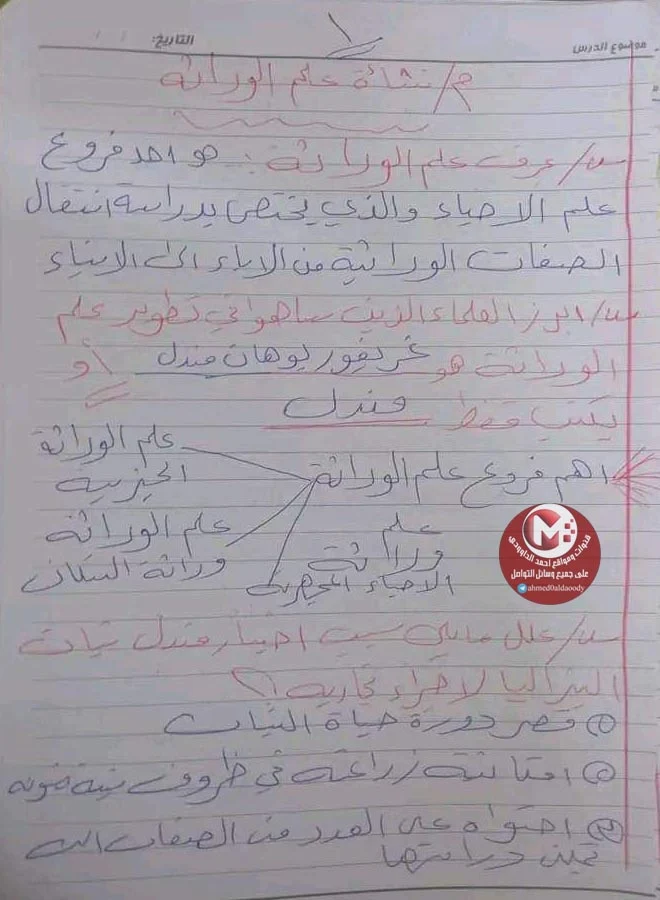 ١
موضوع الدرس: التاريخ:
م/ نشأة علم الوراثة
س/ عرف علم الوراثة: هو احد فروع
علم الاحياء والذي يختص بدراسة انتقال
الصفات الوراثية من الاباء الى الابناء
س/ ابرز العلماء الذين ساهموا في تطوير علم
الوراثة هو غريغور يوهان مندل أو
يكتب فقط مندل
اهم فروع علم الوراثة
علم الوراثة
الجزيئية
علم الوراثة
وراثة السكان
علم
وراثة
الاحياء المجهرية
س/ علل مايلي سبب اختيار مندل نبات
البزاليا لاجراء تجاربه؟
① قصر دورة حياة النبات
② امكانية زراعته في ظروف بيئية
③ احتواه على العدد من الصفات التي
تمكن دراستها
قنوات ومواقع احمد الداوودي
على جميع وسائل التواصل
@ahmed0aldaoody